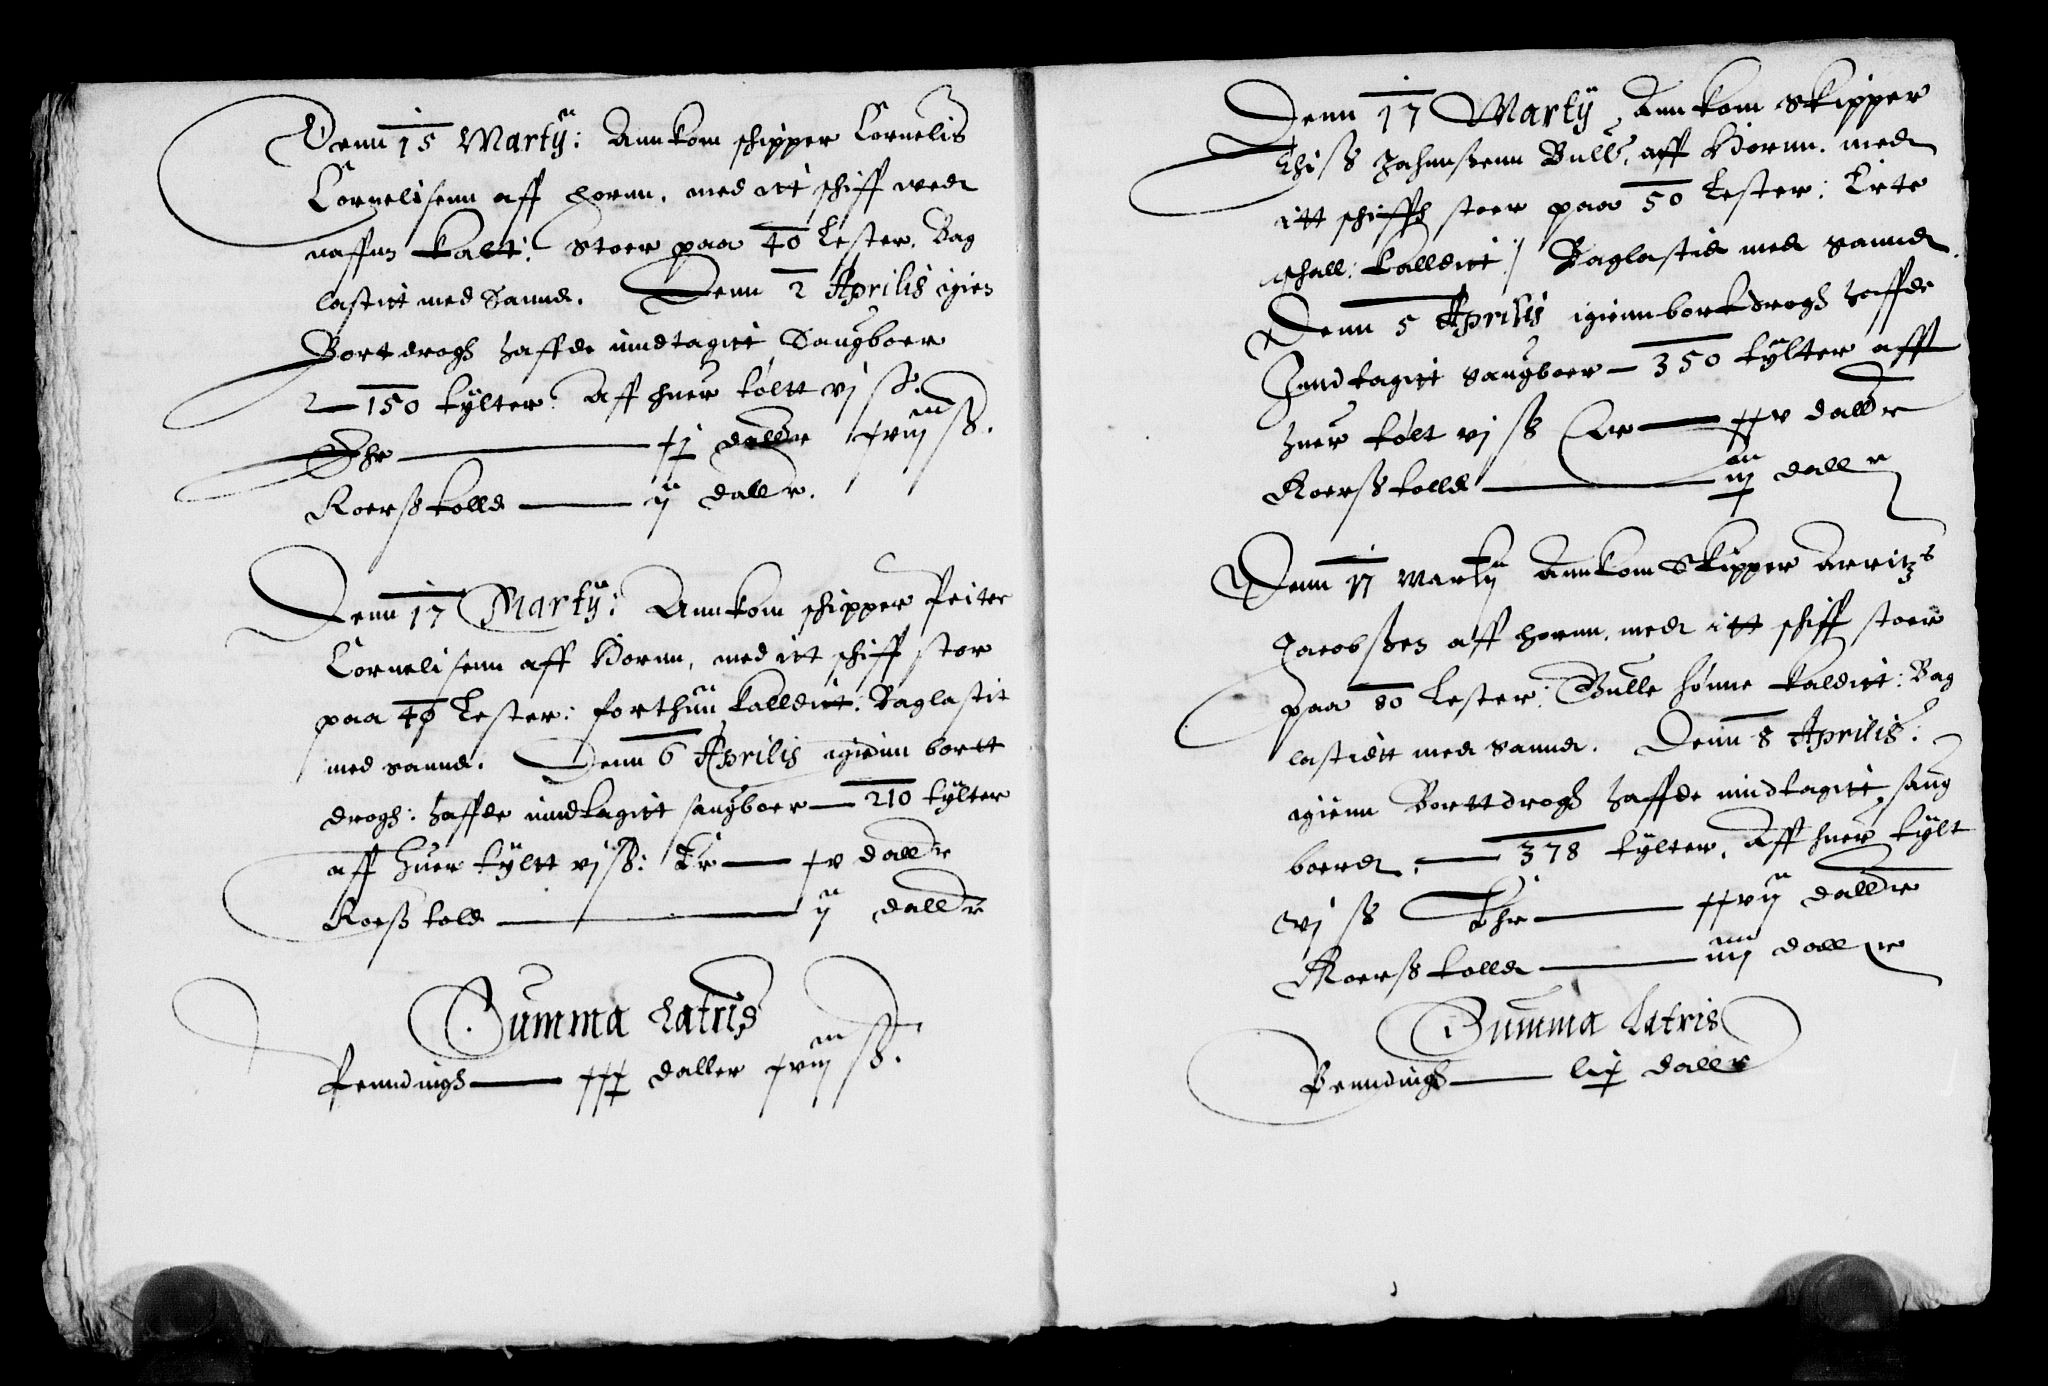 Denn 15 Martÿ: Annkom schipper Cornelis
Cornelisenn aff hornn, med itt schiff wed
naffnn kalt: Stoer paa 40 Lester, Bag
lastitt med Sannd. Denn 2 Aprilis igien
Bortdrogh haffde inndtagitt Saugboer
150 tÿlter. Aff huer tóltt vj ß.
Ehr xj dallr xviij ß.
Roersstolld ij dallr.
Denn 17 Martÿ: Annkom schipper Peiter
Cornelisenn aff Hornn, med itt schiff stor
paa 40 Lester: forthuu kallditt: Baglastit
med sannd. Denn 6 Aprilis igienn bortt
drogh: haffde inndtagitt saugboer 210 tÿlter
aff huer tÿltt vj ß: Er xv dallr
Roersstold ij dallr
Summa Latris
Penndingh xxx daller xviij ß.
Denn 17 Martÿ Annkom Skipper
Thiss Johannßenn Bull, aff Hornn, med
itt schiff stoer paa 50 Lester:
kallditt: Baglastid med sannd.
Denn 5 Aprilis igienn bortdrogh haffde
Inndtagitt saugboer 350 tÿlter aff
huer tólt vj ß Er xxv dallr
Roersstolld iij dallr
Denn 17 Martÿ Annkom Skipper Arritzs
Jacobßen aff hornn, med itt schiff stoer
paa 80 Lester: Bulle hónne kalditt: Bag
lastidtt med sannd. Denn 8 Aprilis:
igienn Borttdrogh haffde inndtagitt saug
boerd, 378 tÿlter, Aff huer tÿlt
vj ß Ehr xxvij dallr
Roersstolld iiij dallr
Summa Latris
Penndingh lix dallr